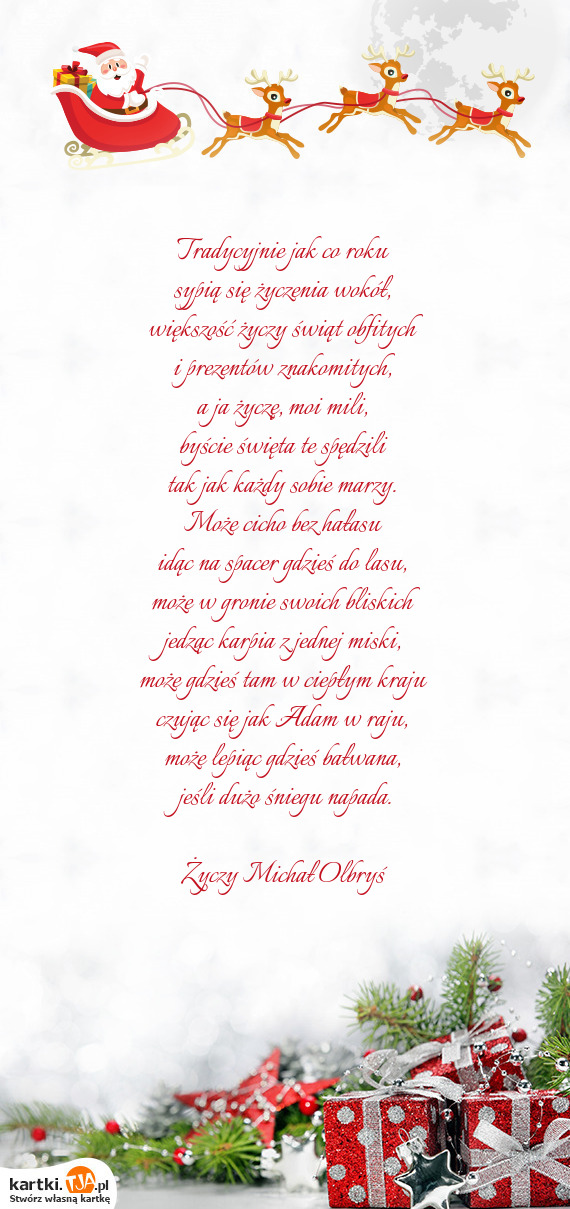 Tradycyjnie jak co roku
sypią się życzenia wokół,
większość życzy świąt obfitych
i prezentów znakomitych,
a ja życzę, moi mili,
byście święta te spędzili
tak jak każdy sobie marzy.
Może cicho bez hałasu
idąc na spacer gdzieś do lasu,
może w gronie swoich bliskich
jedząc karpia z jednej miski,
może gdzieś tam w ciepłym kraju
czując się jak Adam w raju,
może lepiąc gdzieś bałwana,
jeśli dużo śniegu napada.
Życzy Michał Olbryś
kartki.TJA.pl
Stwórz własną kartkę